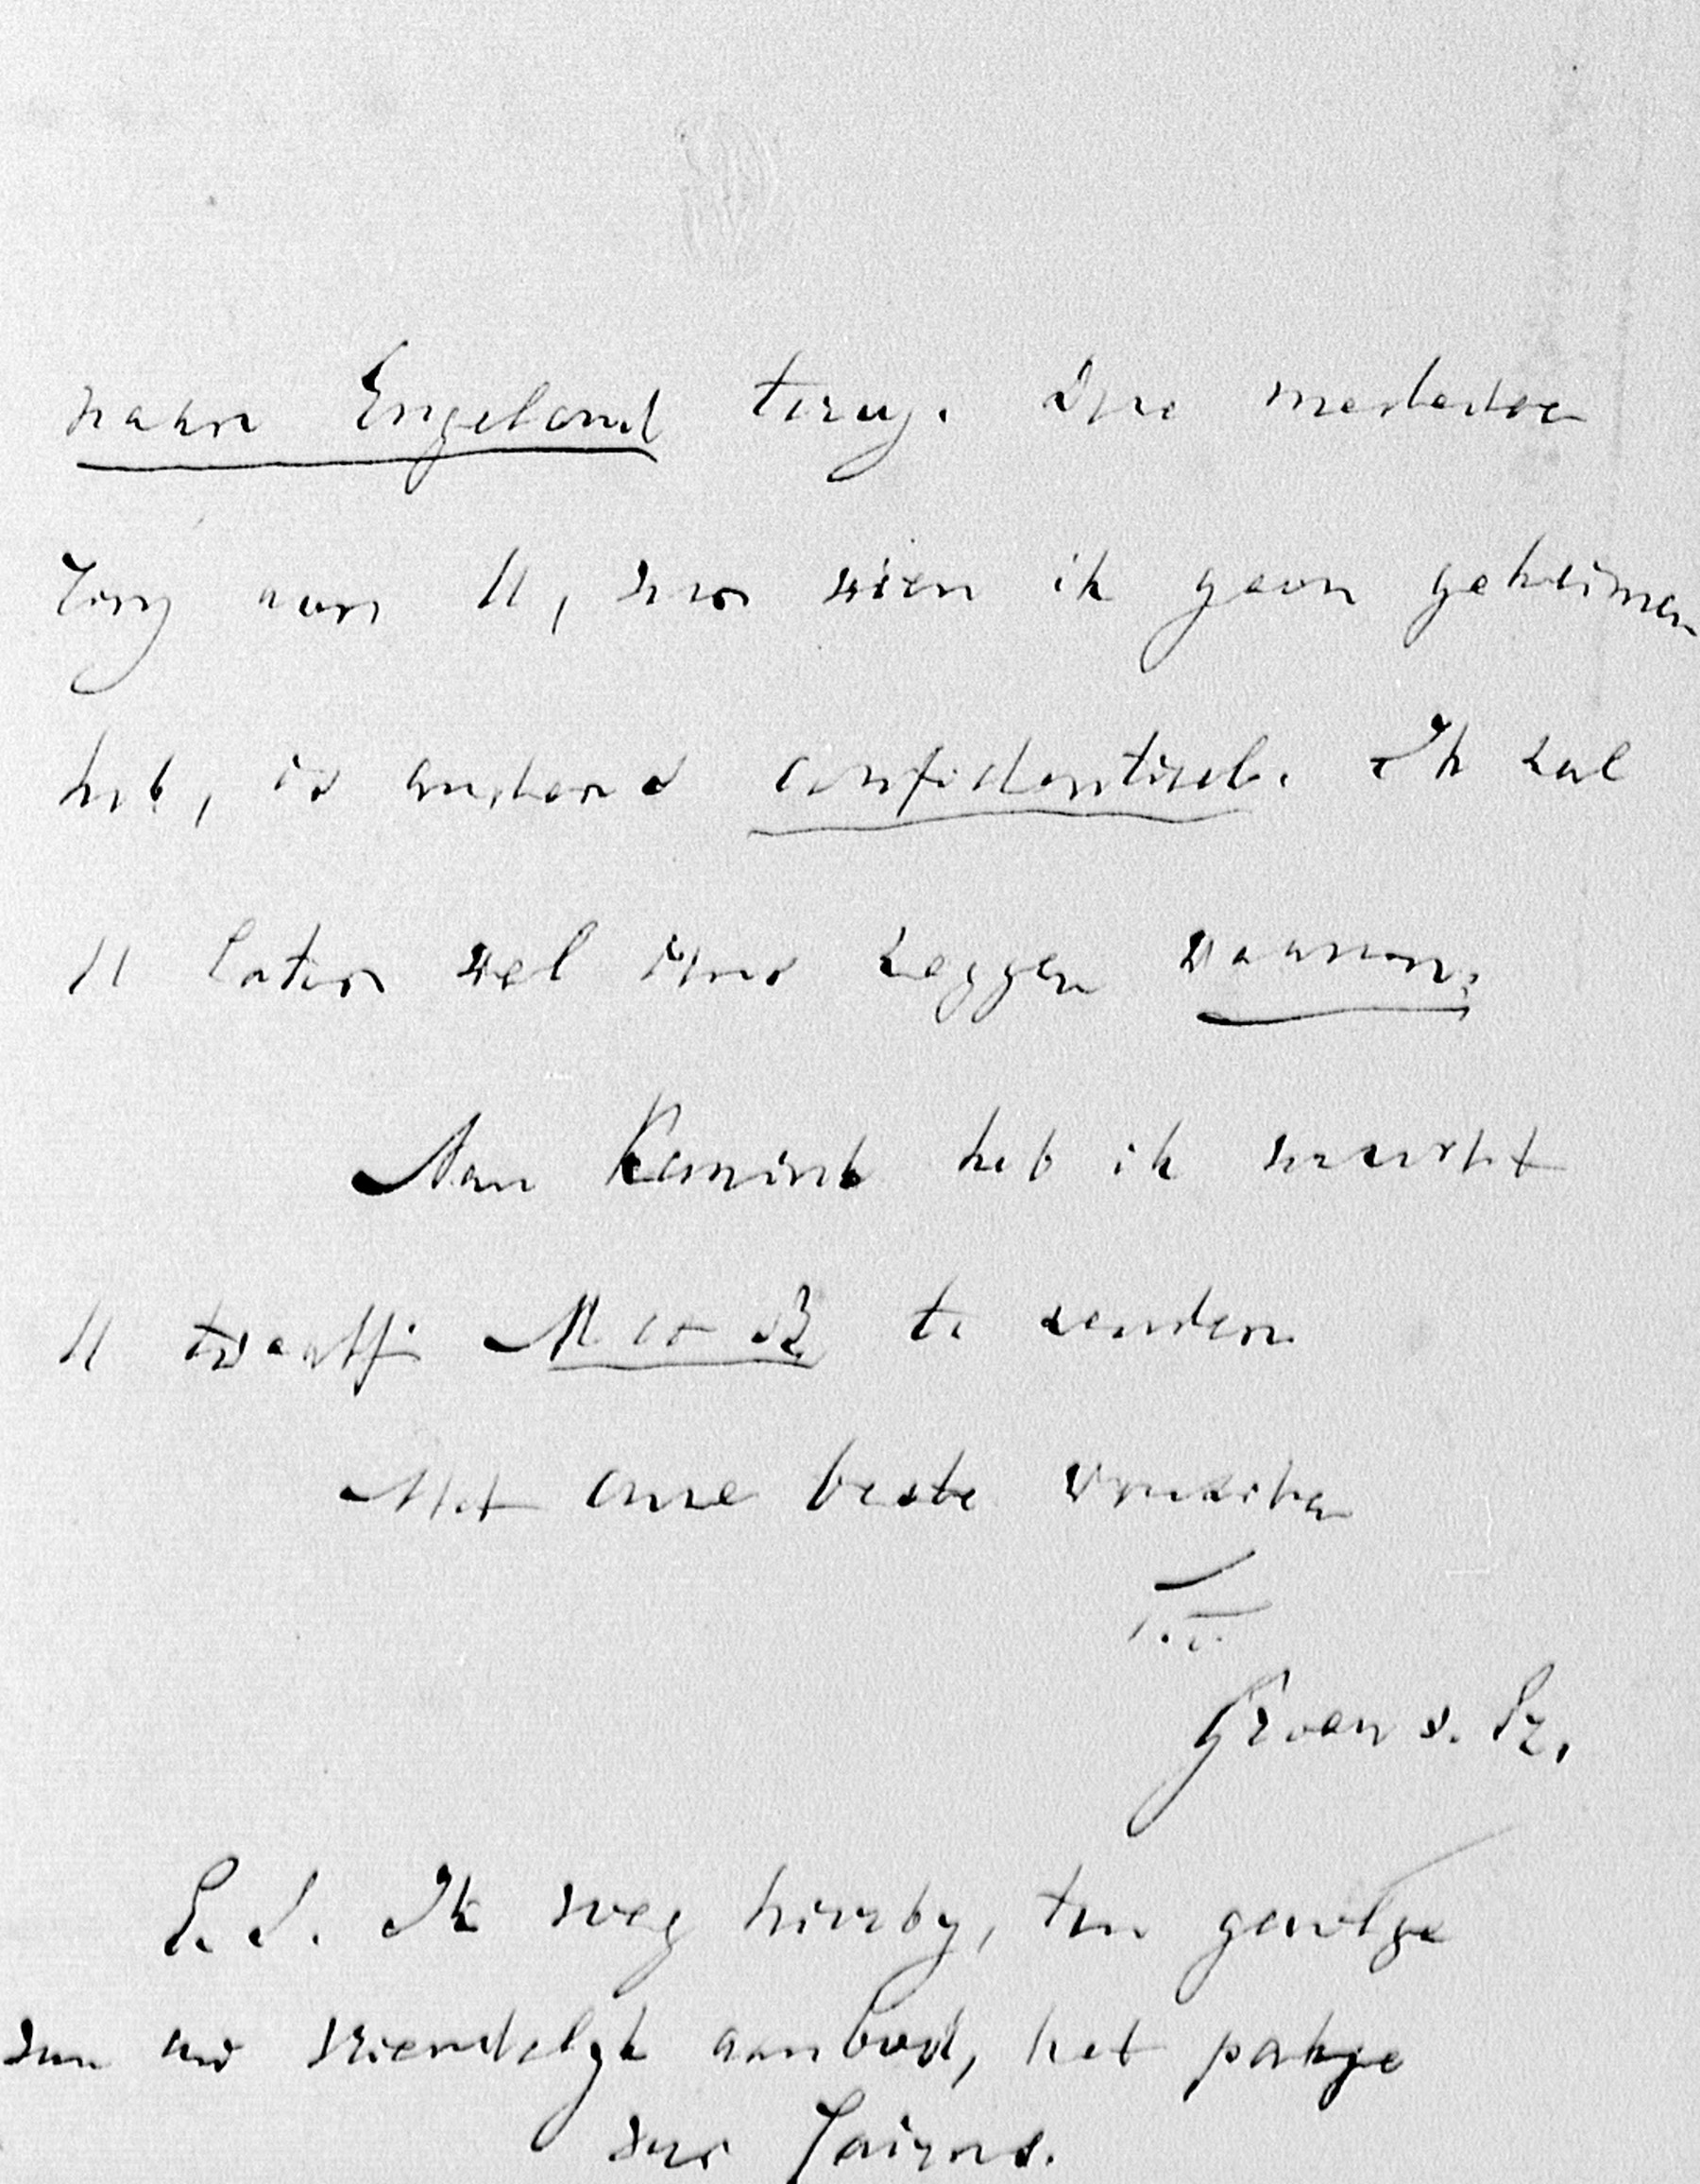 naar Engeland terug. Deze mededee
ling aan U, voor wien ik geen geheimen
heb, is anders confidentieel. Ik zal
U later wel eens zeggen waarom.
Aan Kemink heb ik verzocht
U twaalf M et B te zenden
Met onze beste wenschen
T.T.
Groen v. Pr.
P.S. Ik voeg hierby, ten gevolge
van uw vriendelyk aanbod, het pakje
voor Cairns.